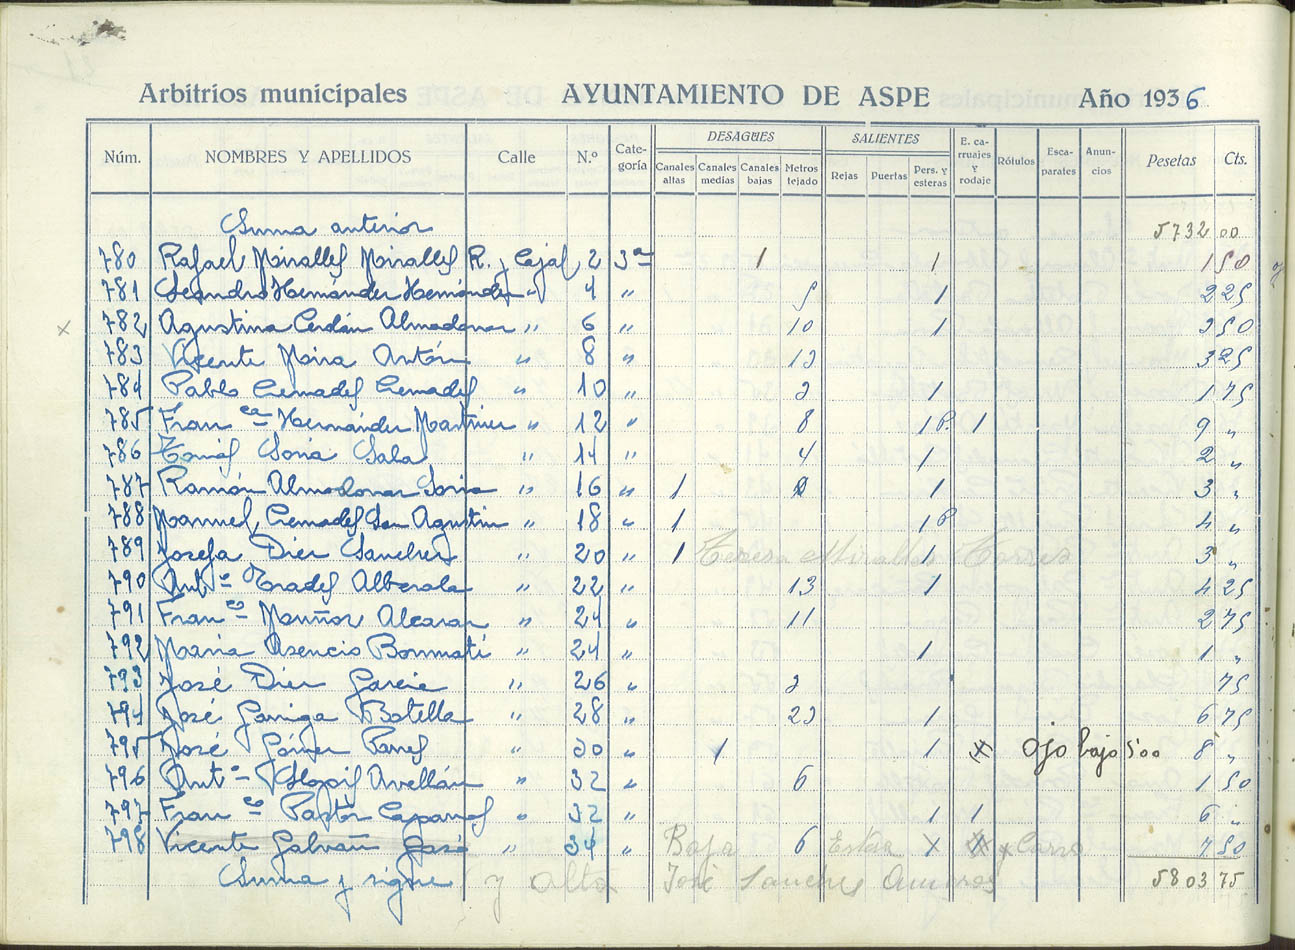 Arbitrios municipales AYUNTAMIENTO DE ASPE Año 1936
Núm. NOMBRES Y APELLIDOS Calle N.º Cate-goría DESAGÜES Canales altas Canales medias Canales bajas Metros tejado SALIENTES Rejas Puertas Pers. y esteras E. ca-rruajes y rodaje Rótulos Esca-parates Anun-cios Pesetas Cts.
Suma anterior 5732 00
780 Rafael Miralles Miralles R. y Cajal 2 3ª 1 1 1 50
781 Leandro Hernández Hernández " 4 " 5 1 2 25
782 Agustina Cerdán Almodovar " 6 " 10 1 3 50
783 Vicente Mira Antón " 8 " 13 3 25
784 Pablo Cremades Cremades " 10 " 3 1 1 75
785 Fran ca Hernández Martínez " 12 " 8 1 P. 1 9 "
786 Tomás Soria Sala " 14 " 4 1 2 "
787 Ramón Almodovar Soria " 16 " 1 1 3 "
788 Manuel Cremades San Agustin " 18 " 1 1 P 4 "
789 Josefa Diez Sanchez " 20 " 1 Teresa Miralles Torres 1 3 "
790 Antº Prades Alberola " 22 " 13 1 4 25
791 Fran co Muñoz Alcaraz " 24 " 11 2 75
792 Maria Asencio Bonmatí " 24 " 1 1 "
793 José Diez Garcia " 26 " 3 75
794 José Garriga Botella " 28 " 23 1 6 75
795 José Gómez Panes " 30 " 1 1 X ojo bajo 5'00 8 "
796 Antº Llopis Avellán " 32 " 6 1 50
797 Fran co Pastor Caparros " 32 " 1 1 6 "
798 Vicente Galvañ José " 34 " Baja 6 X y Carro 7 50
Suma y sigue y alta José Sanchez Amoros 5803 75